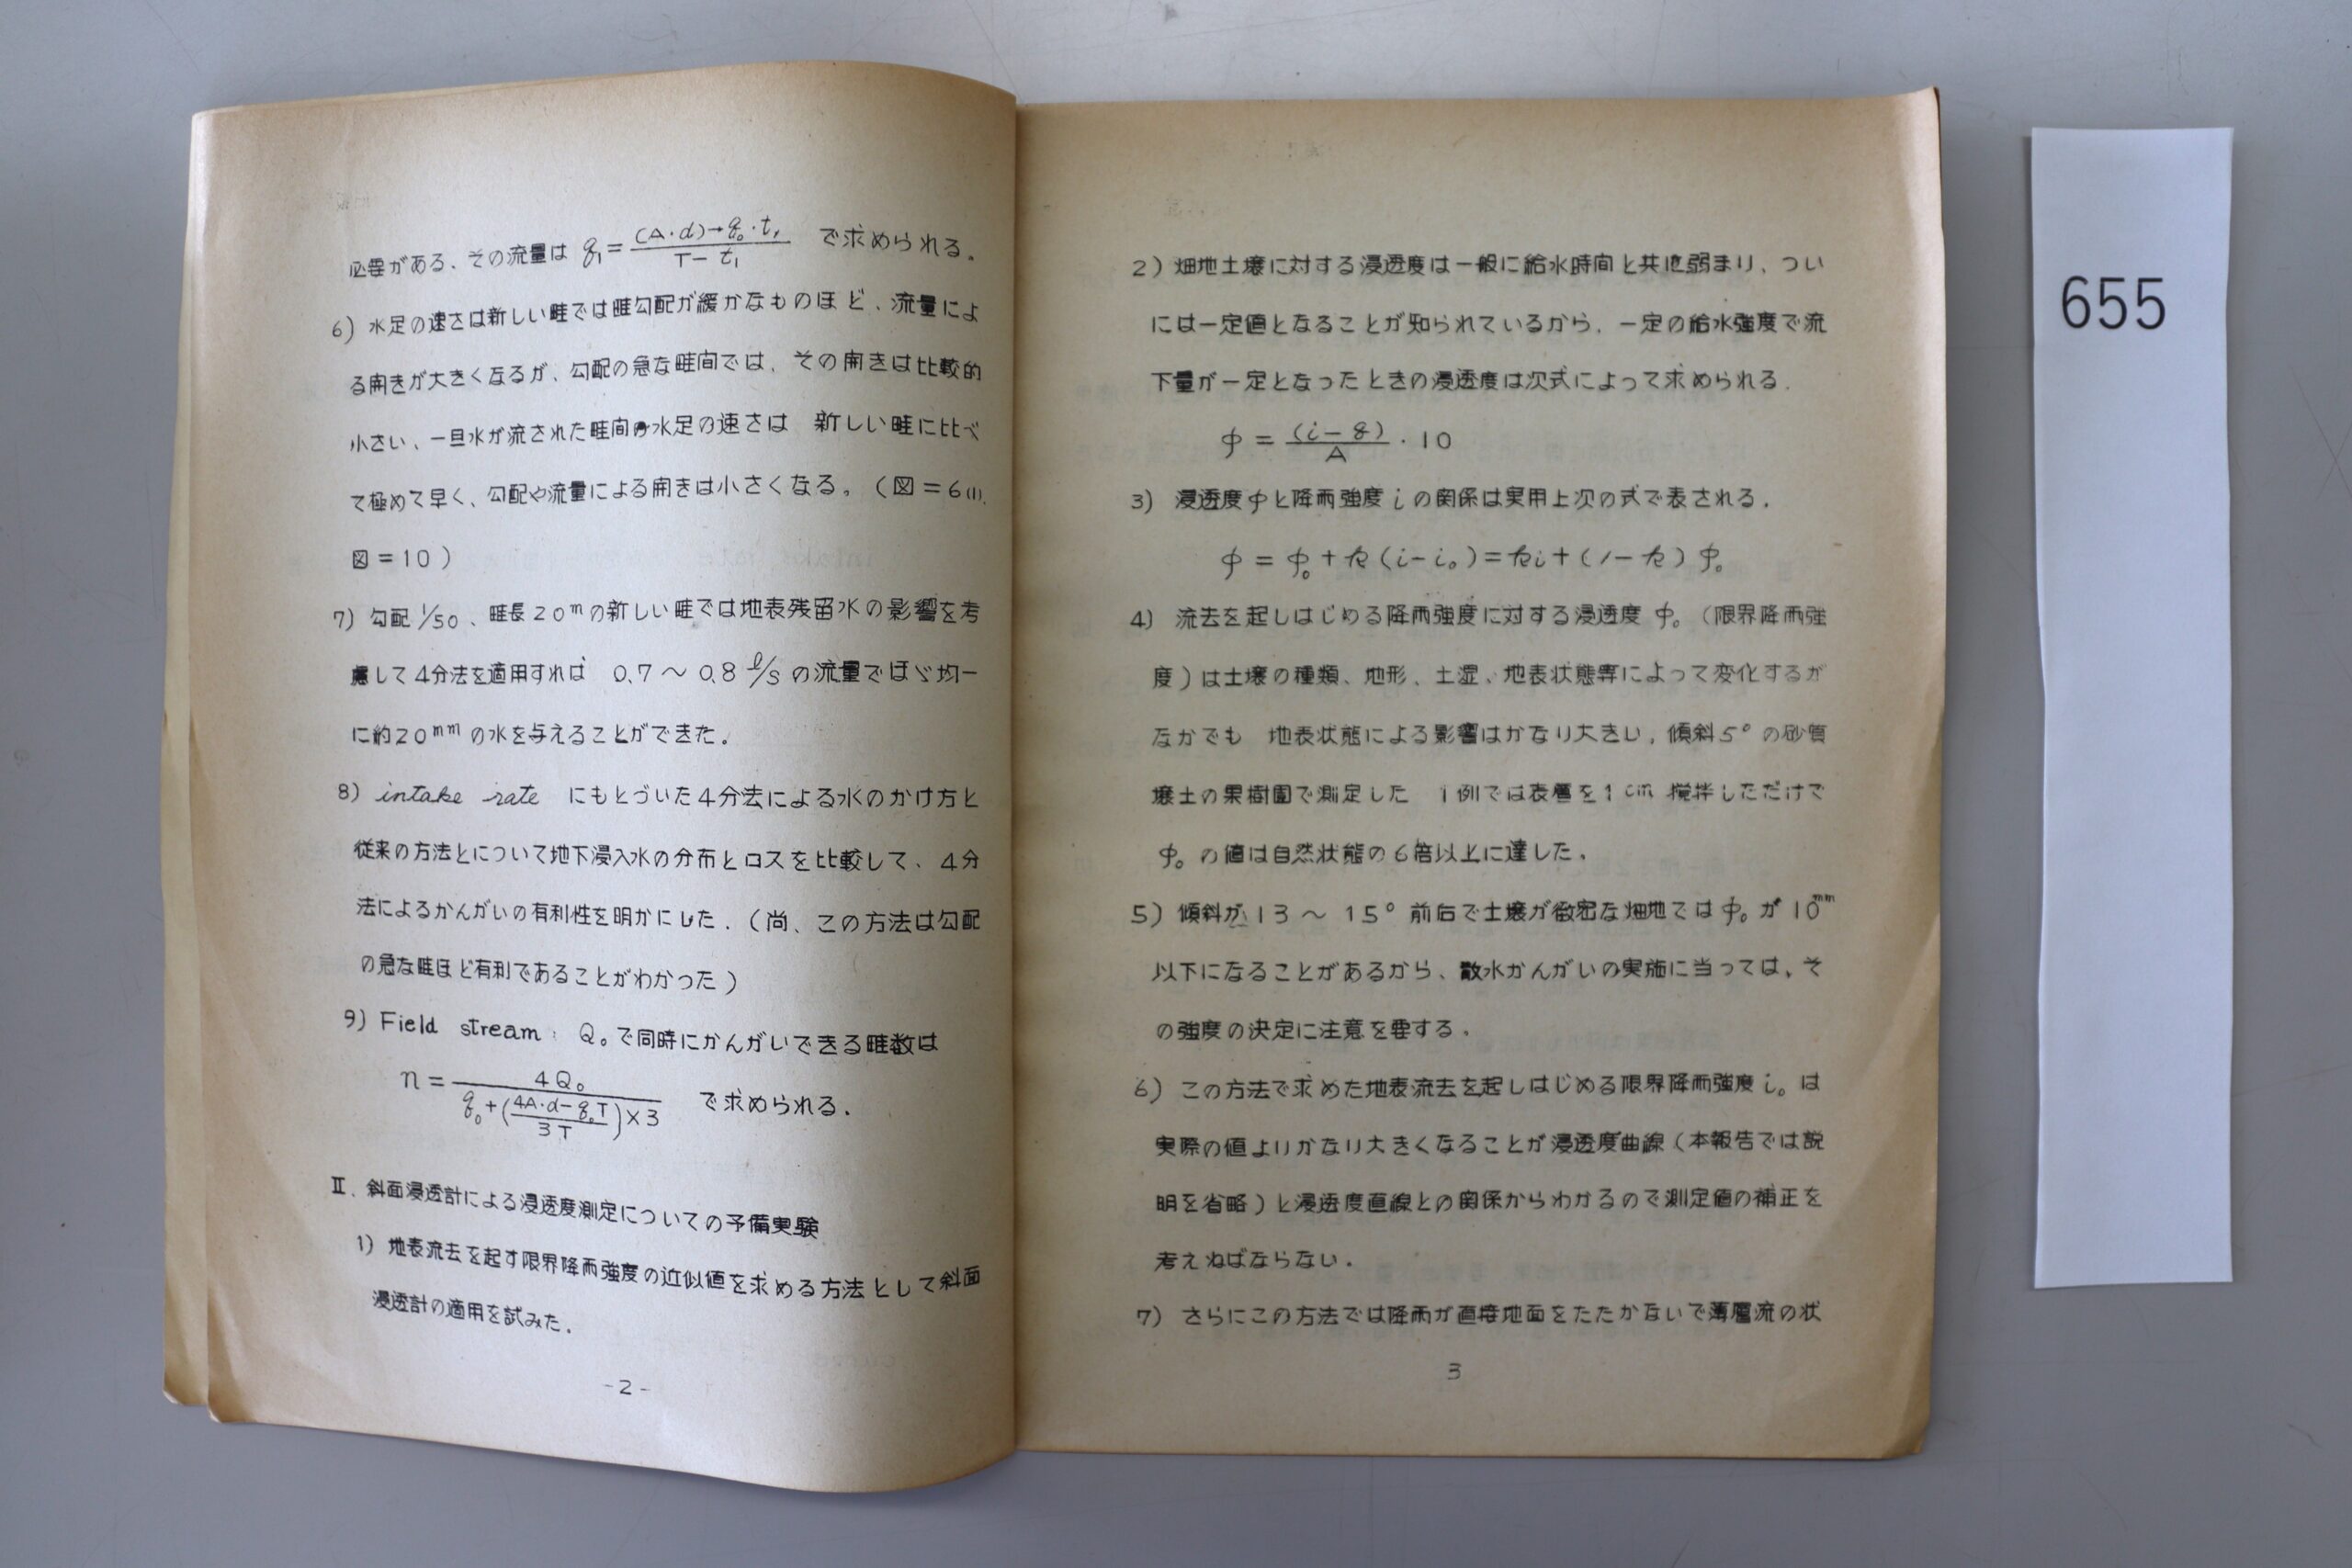 必要がある、その流量は q₁=(A・d)-q₀・t₁/T-t₁ で求められる。
6) 水足の速さは新しい畦では畦勾配が緩かなものほど、流量によ
る開きが大きくなるが、勾配の急な畦間では、その開きは比較的
小さい、一旦水が流された畦間の水足の速さは 新しい畦に比べ
て極めて早く、勾配や流量による開きは小さくなる。(図=6(1).
図=10)
7) 勾配1/50、畦長20mの新しい畦では地表残留水の影響を考
慮して4分法を適用すれば 0.7〜0.8 ℓ/sの流量でほゞ均一
に約20mmの水を与えることができた。
8) intake rate にもとづいた4分法による水のかけ方と
従来の方法とについて地下浸入水の分布とロスを比較して、4分
法によるかんがいの有利性を明かにした.(尚、この方法は勾配
の急な畦ほど有利であることがわかった)
9) Field stream: Q₀で同時にかんがいできる畦数は
n=4Q₀/q₀+(4A・d-q₀T/3T)×3 で求められる.
Ⅱ. 斜面浸透計による浸透度測定についての予備実験
1) 地表流去を起す限界降雨強度の近似値を求める方法として斜面
浸透計の適用を試みた.
-2-
2) 畑地土壌に対する浸透度は一般に給水時間と共に弱まり、つい
には一定値となることが知られているから、一定の給水強度で流
下量が一定となったときの浸透度は次式によって求められる.
φ=(i-q)/A・10
3) 浸透度φと降雨強度iの関係は実用上次の式で表される.
φ=φ₀+k(i-i₀)=ki+(1-k)φ₀
4) 流去を起しはじめる降雨強度に対する浸透度φ₀(限界降雨強
度)は土壌の種類、地形、土湿、地表状態等によって変化するが
なかでも 地表状態による影響はかなり大きい, 傾斜5°の砂質
壌土の果樹園で測定した 1例では表層を1cm 撹拌しただけで
φ₀の値は自然状態の6倍以上に達した.
5) 傾斜が13〜15°前后で土壌が緻密な畑地ではφ₀が10mm
以下になることがあるから、散水かんがいの実施に当っては、そ
の強度の決定に注意を要する.
6) この方法で求めた地表流去を起しはじめる限界降雨強度i₀は
実際の値よりかなり大きくなることが浸透度曲線(本報告では説
明を省略)と浸透度直線との関係からわかるので測定値の補正を
考えねばならない.
7) さらにこの方法では降雨が直接地面をたたかないで薄層流の状
3
655